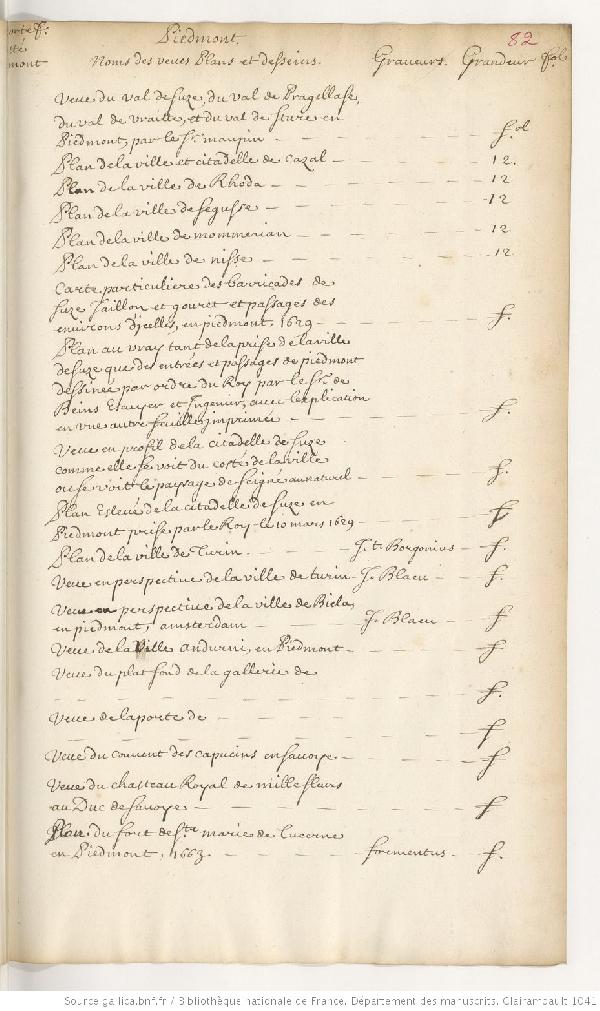 Piedmont. 82
Noms des veues Plans et desseins. Graveurs. Grandeur fol.
mont
Veue du val de suze, du val de Pragellase,
du val de vraitte, et du val de sture en
Piedmont, par le Sr. maupin - - - - fol
Plan de la ville et citadelle de Cazal - - - - 12.
Plan de la ville de Rhoda - - - - 12
Plan de la ville de segusse - - - - 12
Plan de la ville de mommerian - - - - 12
Plan de la ville de nisse - - - - 12.
Carte particuliere des barricades de
suze Jaillon et gouret et passages des
environs d'jcelles, en piedmont, 1629 - - - f.
Plan au vray tant de la prise de la ville
de suze que des entrées et passages de piedmont
dessinée par ordre du Roy par le Sr. de
Beins Escuyer et Jngenieur, avec l'explication
en vne autre feuille jmprimée - - - f.
Veue en profil de la citadelle de suze
comme elle se voit du costé de la ville
ou se voit le paysage de seigné au naturel - - - f.
Plan Eslevé de la citadelle de suze en
Piedmont prise par le Roy le 10 mars 1629 - - - f
Plan de la ville de Turin - - J. t. Borgonius - f.
Veue en perspective de la ville de turin - J. Blaeu - f.
Veue en perspective de la ville de Biela,
en piedmont, amsterdam - - J. Blaeu - f
Veue de la Ville andurni, en Piedmont - - - f
Veue du platfond de la gallerie de
- - - - f.
Veue de la porte de - - - -
- - - - f
Veue du couuent des capucins en savoye - - - f
Veue du chasteau Royal de millefleurs
au Duc de savoye - - - - f
Plan du fort de Ste. marie de Lucerne
en Piedmont, 1663 - - - formentus - f.
Source gallica.bnf.fr / Bibliothèque nationale de France. Département des manuscrits. Clairambault 1041